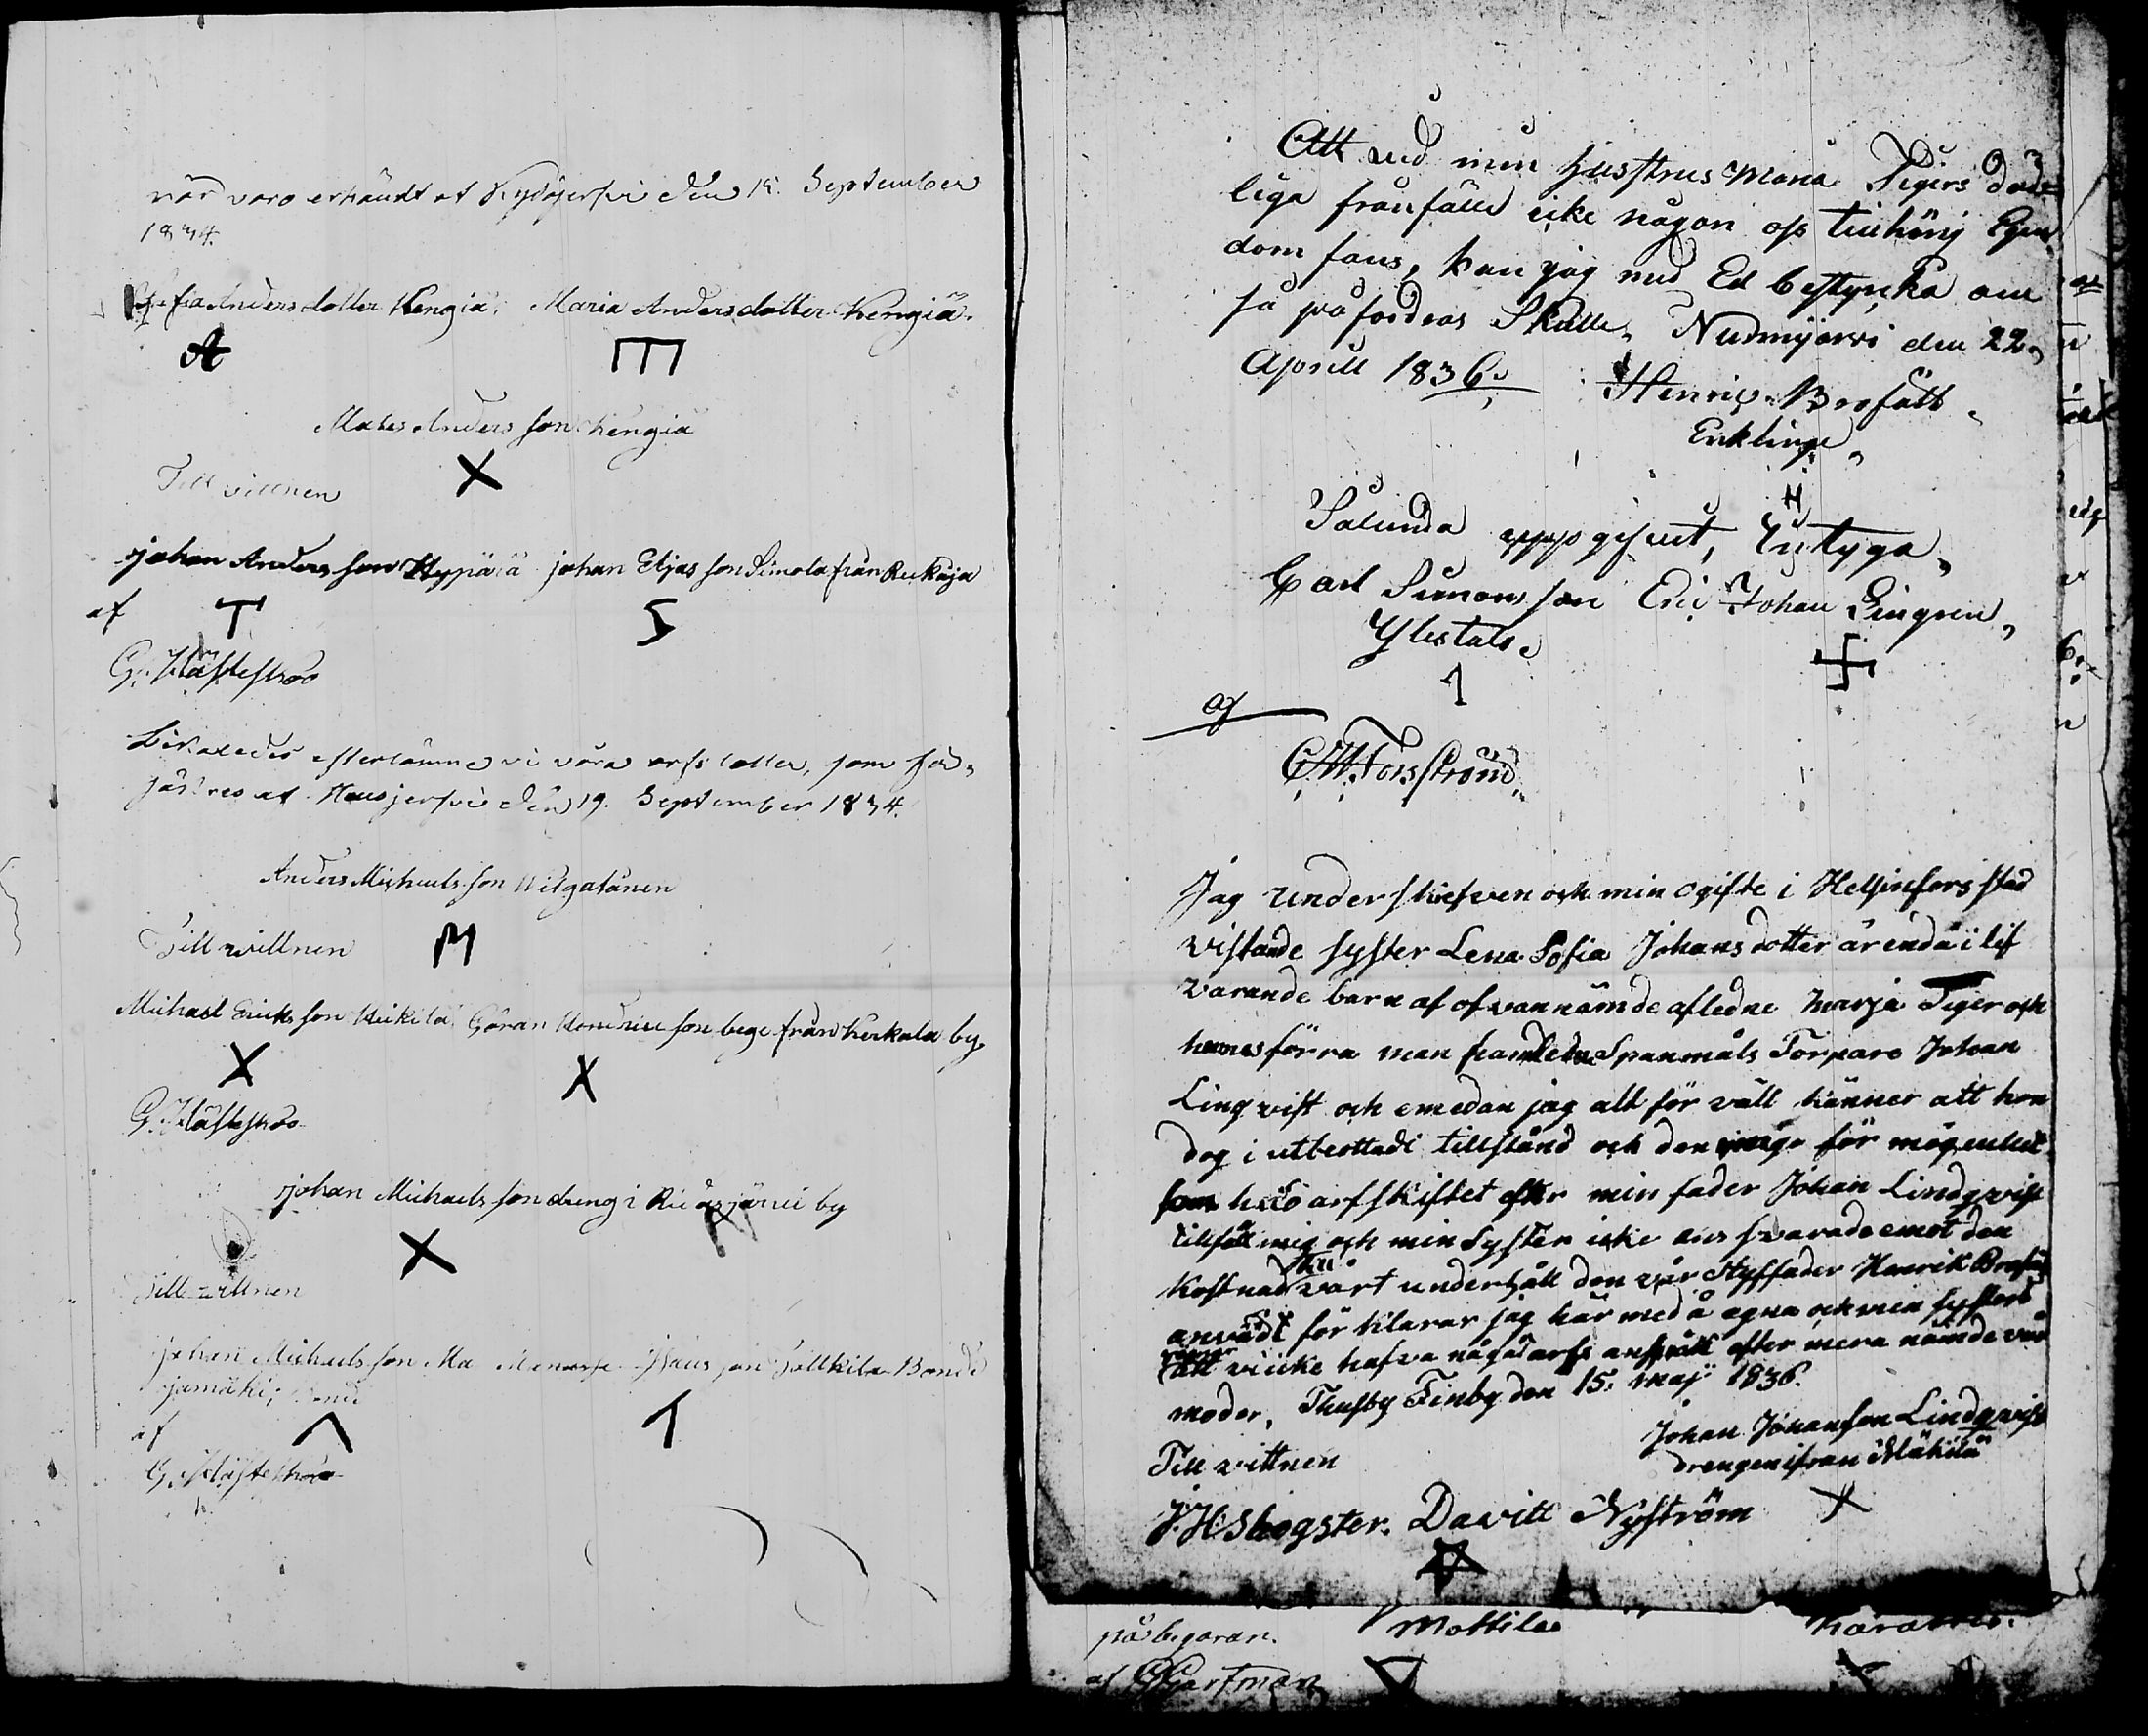 vår varo erkändt at Rydöjerfvi den 18. September
1834.
Sofia Anders dotter Kengiä, Maria Andersdotter Kengiä.
A
Mates Anders son Kengiä
X
Till vittnen
johan Anders son Hyppärä johan Eljas son Simola från Ruckåja
af
G. Häftestroo
Likaledes efterlämne vi våra arfs lotter, som för,
säkres at Hausjerfvi den 19. September 1834.
Anders Michaels son Wilgatanen
Till wittnen
Michael Ericks son Heikilä, Göran Hendric son bege från Kerkala by
X X
G. Häftestroo
johan Michaels son dreng i Ridasjärvi by
X
Till wittnen
johan Michaels son Ma son Sällkila Bonde
jamäki, Bonde
af
G. Häftestroo
Att ved min Husstrus Maria Tigers död=
liga frånfälle icke någon oss tillhörig Egen
dom fans, kan jag med Ed bestyrcka om
så påfordras Skulle, Nurmijärvi den 22,
Aprill 1836.
Henric Brofält
Enklinge,
H
Sålunda uppgifvit, Intyga,
Carl Simons son Eric Johan Lingren,
Ylestalo.
af
C. W. Forsström
Jag underskrefven och min ogifte i Helsinfors stad
vistande syster Lena Sofia Johans dotter är enda i lif
varande barn af ofvannämde afledne Marja Tiger och
hennes förra man framledne Spanmåls Torpare Johan
Linqvist och emedan jag allt för väll känner att hon
dog i utbottadt tillstånd och den ringa för mögenhet
som he arfskiftet efter min fader Johan Lindqvist
tillföll mig och min Syster icke ens svarade emot den
kostnad till vårt underhåll den vår Styffader Henrik Brofält
anvädt för klarar jag här med å egna och min systers
vägnar att vi icke hafva någåt arfs anspråk efter mera nämde vår
moder, Thusby Finby den 15. maj 1836.
Johan Johansson Lindqvist
drengen ifran Mäkilä
Till vittnen
J. H. Skogster. Davitt Nyström X
på begäran. Mottila
af Hartman